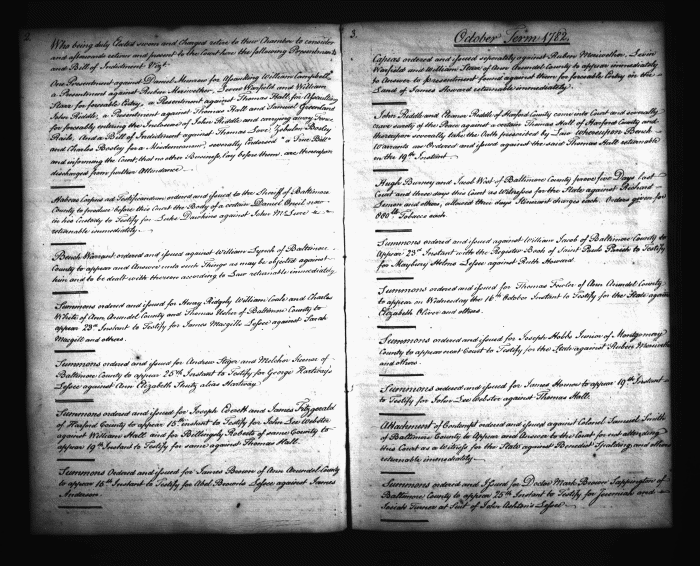 2.
Who being duly Elected sworn and Charged retire to their Chamber to consider
and afterwards retires and present to the Court here the following Presentments
and Bill of Indictment Vizt.
One Presentment against Daniel for Assaulting William Campbell,
a Presentment against Ruben Meriwether, Levin Warfield and William
for forceable Entry, a Presentment against Thomas Hall for Assaulting
John Riddle, a Presentment against Thomas Hall and Samuel
for forceably entering the Inclosure of John Riddle and carrying away
and a Bill of Indictment against Thomas Love, Zebulon Bosley
and Charles Bosley for a Misdemeanor, severally Endorsed "a True Bill"
and informing the Court that no other Business lay before them are thereupon
discharged from further Attendance
Habeas Corpus ad Testificandum ordered and issued to the Sheriff of Baltimore
County to produce before this Court the Body of a certain Daniel now
in his Custody to Testify for Luke against John McLure
returnable immediately
Bench Warrant ordered and issued against William Lynch of Baltimore
County to appear and Answer unto such Things as may be objected against
him and to be dealt with therein according to Law returnable immediately
Summons ordered and issued for Henry Ridgely William Cooke and Charles
White of Ann Arundel County and Thomas Usher of Baltimore County to
appear 23d Instant to Testify for James Margills Lessee against Sarah
Margill and others.
Summons ordered and issued for Andrew Stiger and Melchor Keener of
Baltimore County to appear 25th Instant to Testify for George Hartways
Lessee against Ann Elizabeth Shutz alias Hartway
Summons ordered and issued for Joseph Everett and James Fitzgerald
of Harford County to appear 15th instant to Testify for John Lee Webster
against William Hall and for Billingsly Roberts of same County to
appear 19th Instant to Testify for same against Thomas Hall.
Summons Ordered and issued for James Brown of Ann Arundel County
to appear 16th Instant to Testify for Abel Browns Lessee against James
Anderson.
3.
October Term 1782.
Capias ordered and issued separately against Ruben Meriwether, Levin
Warfield and William of Ann Arundel County to appear immediately
to Answer to presentment found against them for forceable Entry in the
Land of James Howard returnable immediately.
John Riddle and Eleanor Riddle of Harford County came into Court and severally
crave surety of the Peace against a certain Thomas Hall of Harford County and
thereupon severally take the Oath prescribed by Law Whereupon Bench
Warrants are Ordered and issued against the said Thomas Hall returnable
on the 19th Instant
Hugh Burney and Jacob West of Baltimore County Days last
Court and three days this Court as Witnesses for the State against Richard
Lemon and others, allowed three days Itinerant charges each. Orders given for
880 lb Tobacco each.
Summons ordered and issued against William Jacob of Baltimore County to
appear 23d Instant with the Register Book of Saint Pauls Parish to Testify
for Mayberry Helms Lessee against Ruth Howard.
Summons ordered and issued for Thomas Fowler of Ann Arundel County
to appear on Wednesday the 16th October Instant to Testify for the State against
Elizabeth Oliver and others.
Summons ordered and issued for Joseph Hobbs Junior of Montgomery
County to appear next Court to Testify for the State against Ruben Meriwether
and others.
Summons ordered and issued for James to appear 19th Instant
to Testify for John Lee Webster against Thomas Hall.
Attachment of Contempt ordered and issued against Colonel Samuel Smith
of Baltimore County to Appear and Answer to the Court for not attending
this Court as a Witness for the State against Benedict Spalding and others
returnable immediately
Summons ordered and Issued for Doctor Mark Brown Sappington of
Baltimore County to appear 25th Instant to Testify for Jeremiah and
Josiah at Suit of John Ashton's Lessee